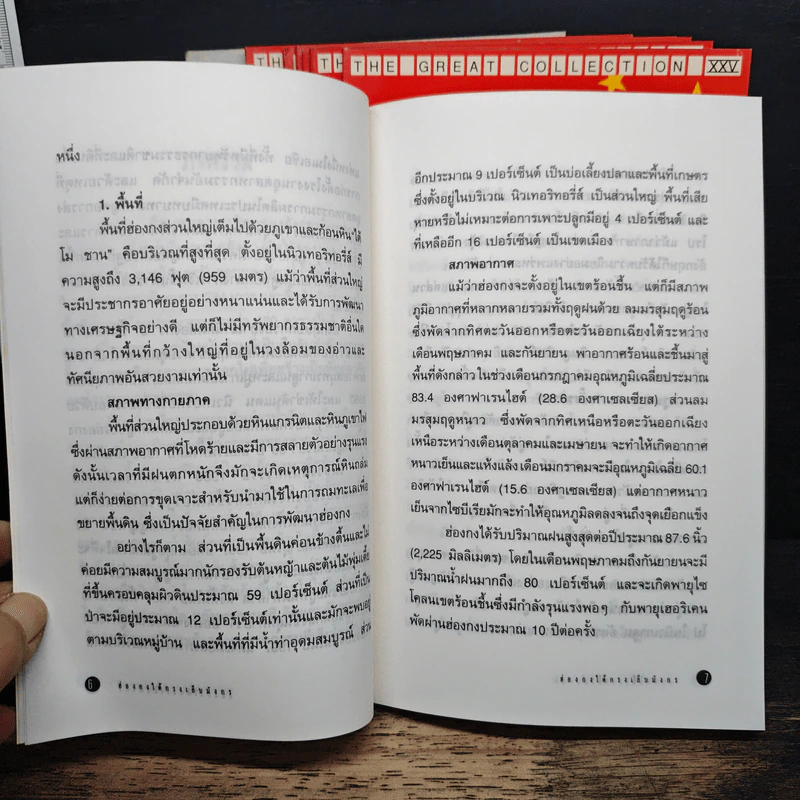 THE GREAT COLLECTION XXV
หนึ่ง
1. พื้นที่
พื้นที่ฮ่องกงส่วนใหญ่เต็มไปด้วยภูเขาและก้อนหิน"ได้
โม ชาน" คือบริเวณที่สูงที่สุด ตั้งอยู่ในนิวเทอริทอรี่ส์ มี
ความสูงถึง 3,146 ฟุต (959 เมตร) แม้ว่าพื้นที่ส่วนใหญ่
จะมีประชากรอาศัยอยู่อย่างหนาแน่นและได้รับการพัฒนา
ทางเศรษฐกิจอย่างดี แต่ก็ไม่มีทรัพยากรธรรมชาติอื่นใด
นอกจากพื้นที่กว้างใหญ่ที่อยู่ในวงล้อมของอ่าวและ
ทัศนียภาพอันสวยงามเท่านั้น
สภาพทางกายภาค
พื้นที่ส่วนใหญ่ประกอบด้วยหินแกรนิตและหินภูเขาไฟ
ซึ่งผ่านสภาพอากาศที่โหดร้ายและมีการสลายตัวอย่างรุนแรง
ดังนั้นเวลาที่มีฝนตกหนักจึงมักจะเกิดเหตุการณ์หินถล่ม
แต่ก็ง่ายต่อการขุดเจาะสำหรับนำมาใช้ในการถมทะเลเพื่อ
ขยายพื้นดิน ซึ่งเป็นปัจจัยสำคัญในการพัฒนาฮ่องกง
อย่างไรก็ตาม ส่วนที่เป็นพื้นดินค่อนข้างตื้นและไม่
ค่อยมีความสมบูรณ์มากนักรองรับต้นหญ้าและต้นไม้พุ่มเตี้ย
ที่ขึ้นครอบคลุมผิวดินประมาณ 59 เปอร์เซ็นต์ ส่วนที่เป็น
ป่าจะมีอยู่ประมาณ 12 เปอร์เซ็นต์เท่านั้นและมักจะพบอยู่
ตามบริเวณหมู่บ้าน และพื้นที่ที่มีน้ำท่าอุดมสมบูรณ์ ส่วน
6 ฮ่องกงใต้กรงเล็บมังกร
อีกประมาณ 9 เปอร์เซ็นต์ เป็นบ่อเลี้ยงปลาและพื้นที่เกษตร
ซึ่งตั้งอยู่ในบริเวณ นิวเทอริทอรี่ส์ เป็นส่วนใหญ่ พื้นที่เสีย
หายหรือไม่เหมาะต่อการเพาะปลูกมีอยู่ 4 เปอร์เซ็นต์ และ
ที่เหลืออีก 16 เปอร์เซ็นต์ เป็นเขตเมือง
สภาพอากาศ
แม้ว่าฮ่องกงจะตั้งอยู่ในเขตร้อนชื้น แต่ก็มีสภาพ
ภูมิอากาศที่หลากหลายรวมทั้งฤดูฝนด้วย ลมมรสุมฤดูร้อน
ซึ่งพัดจากทิศตะวันออกหรือตะวันออกเฉียงใต้ระหว่าง
เดือนพฤษภาคม และกันยายน พาอากาศร้อนและชื้นมาสู่
พื้นที่ดังกล่าว ในช่วงเดือนกรกฎาคมอุณหภูมิเฉลี่ยประมาณ
83.4 องศาฟาเรนไฮต์ (28.6 องศาเซลเซียส) ส่วนลม
มรสุมฤดูหนาว ซึ่งพัดจากทิศเหนือหรือตะวันออกเฉียง
เหนือระหว่างเดือนตุลาคมและเมษายน จะทำให้เกิดอากาศ
หนาวเย็นและแห้งแล้ง เดือนมกราคมจะมีอุณหภูมิเฉลี่ย 60.1
องศาฟาเรนไฮต์ (15.6 องศาเซลเซียส) แต่อากาศหนาว
เย็นจากไซบีเรียมักจะทำให้อุณหภูมิลดลงจนถึงจุดเยือกแข็ง
ฮ่องกงได้รับปริมาณฝนสูงสุดต่อปีประมาณ 87.6 นิ้ว
(2,225 มิลลิเมตร) โดยในเดือนพฤษภาคมถึงกันยายนจะมี
ปริมาณน้ำฝนมากถึง 80 เปอร์เซ็นต์ และจะเกิดพายุไซ
โคลนเขตร้อนชื้นซึ่งมีกำลังรุนแรงพอๆ กับพายุเฮอริเคน
พัดผ่านฮ่องกงประมาณ 10 ปีต่อครั้ง
ฮ่องกงใต้กรงเล็บมังกร 7